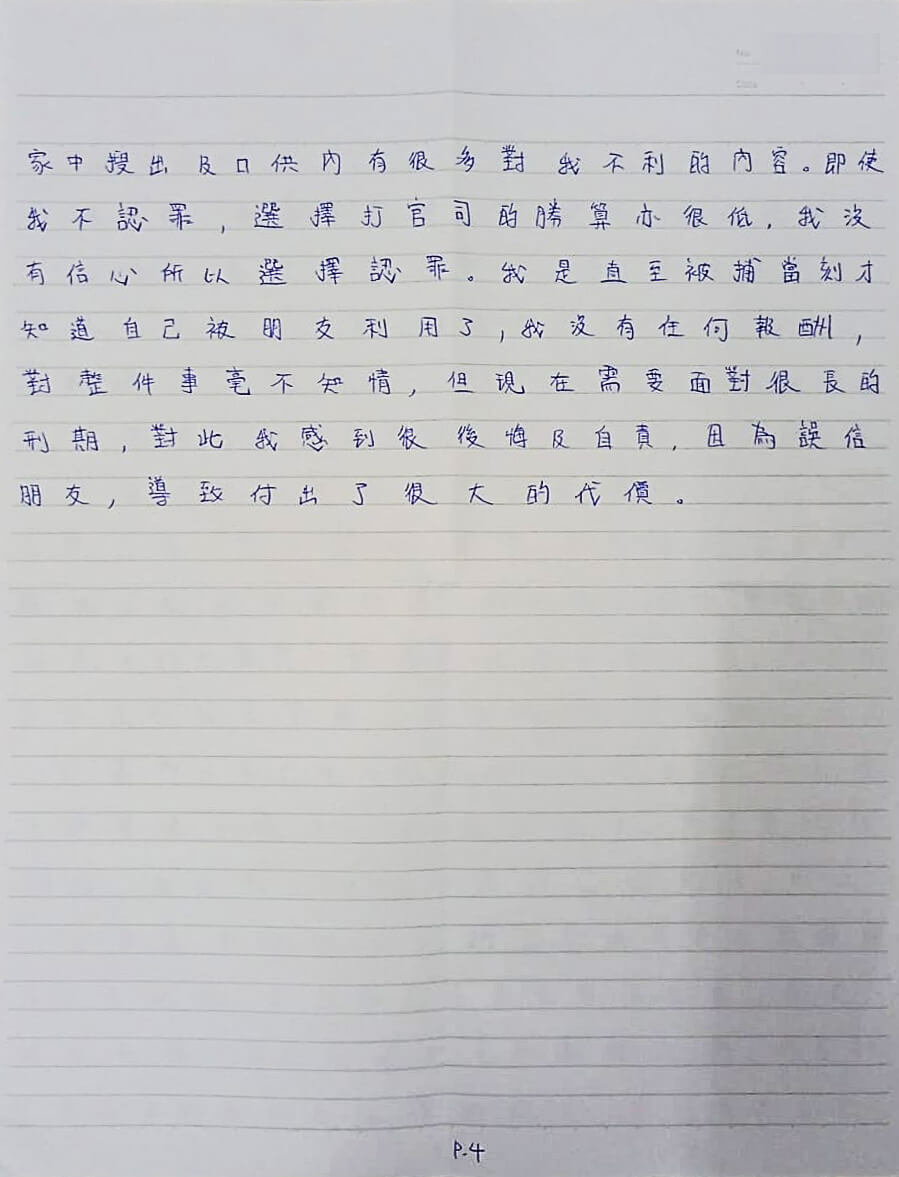 No.
Date
家中搜出及口供內有很多對我不利的內容。即使
我不認罪，選擇打官司的勝算亦很低，我沒
有信心所以選擇認罪。我是直至被捕當刻才
知道自己被朋友利用了，我沒有任何報酬，
對整件事毫不知情，但現在需要面對很長的
刑期，對此我感到很後悔及自責，因為誤信
朋友，導致付出了很大的代價。
P.4